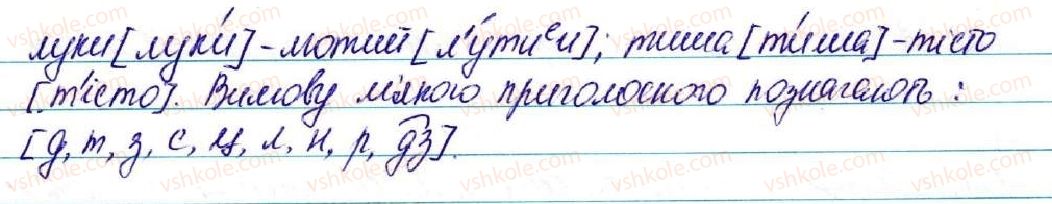 луки [луки́] - лютий [л'у́тиеи]; тиша [ти́ша] - тісто
[т'істо]. Вимову м'якого приголосного позначають :
[д, т, з, с, ц, л, н, р, дз].